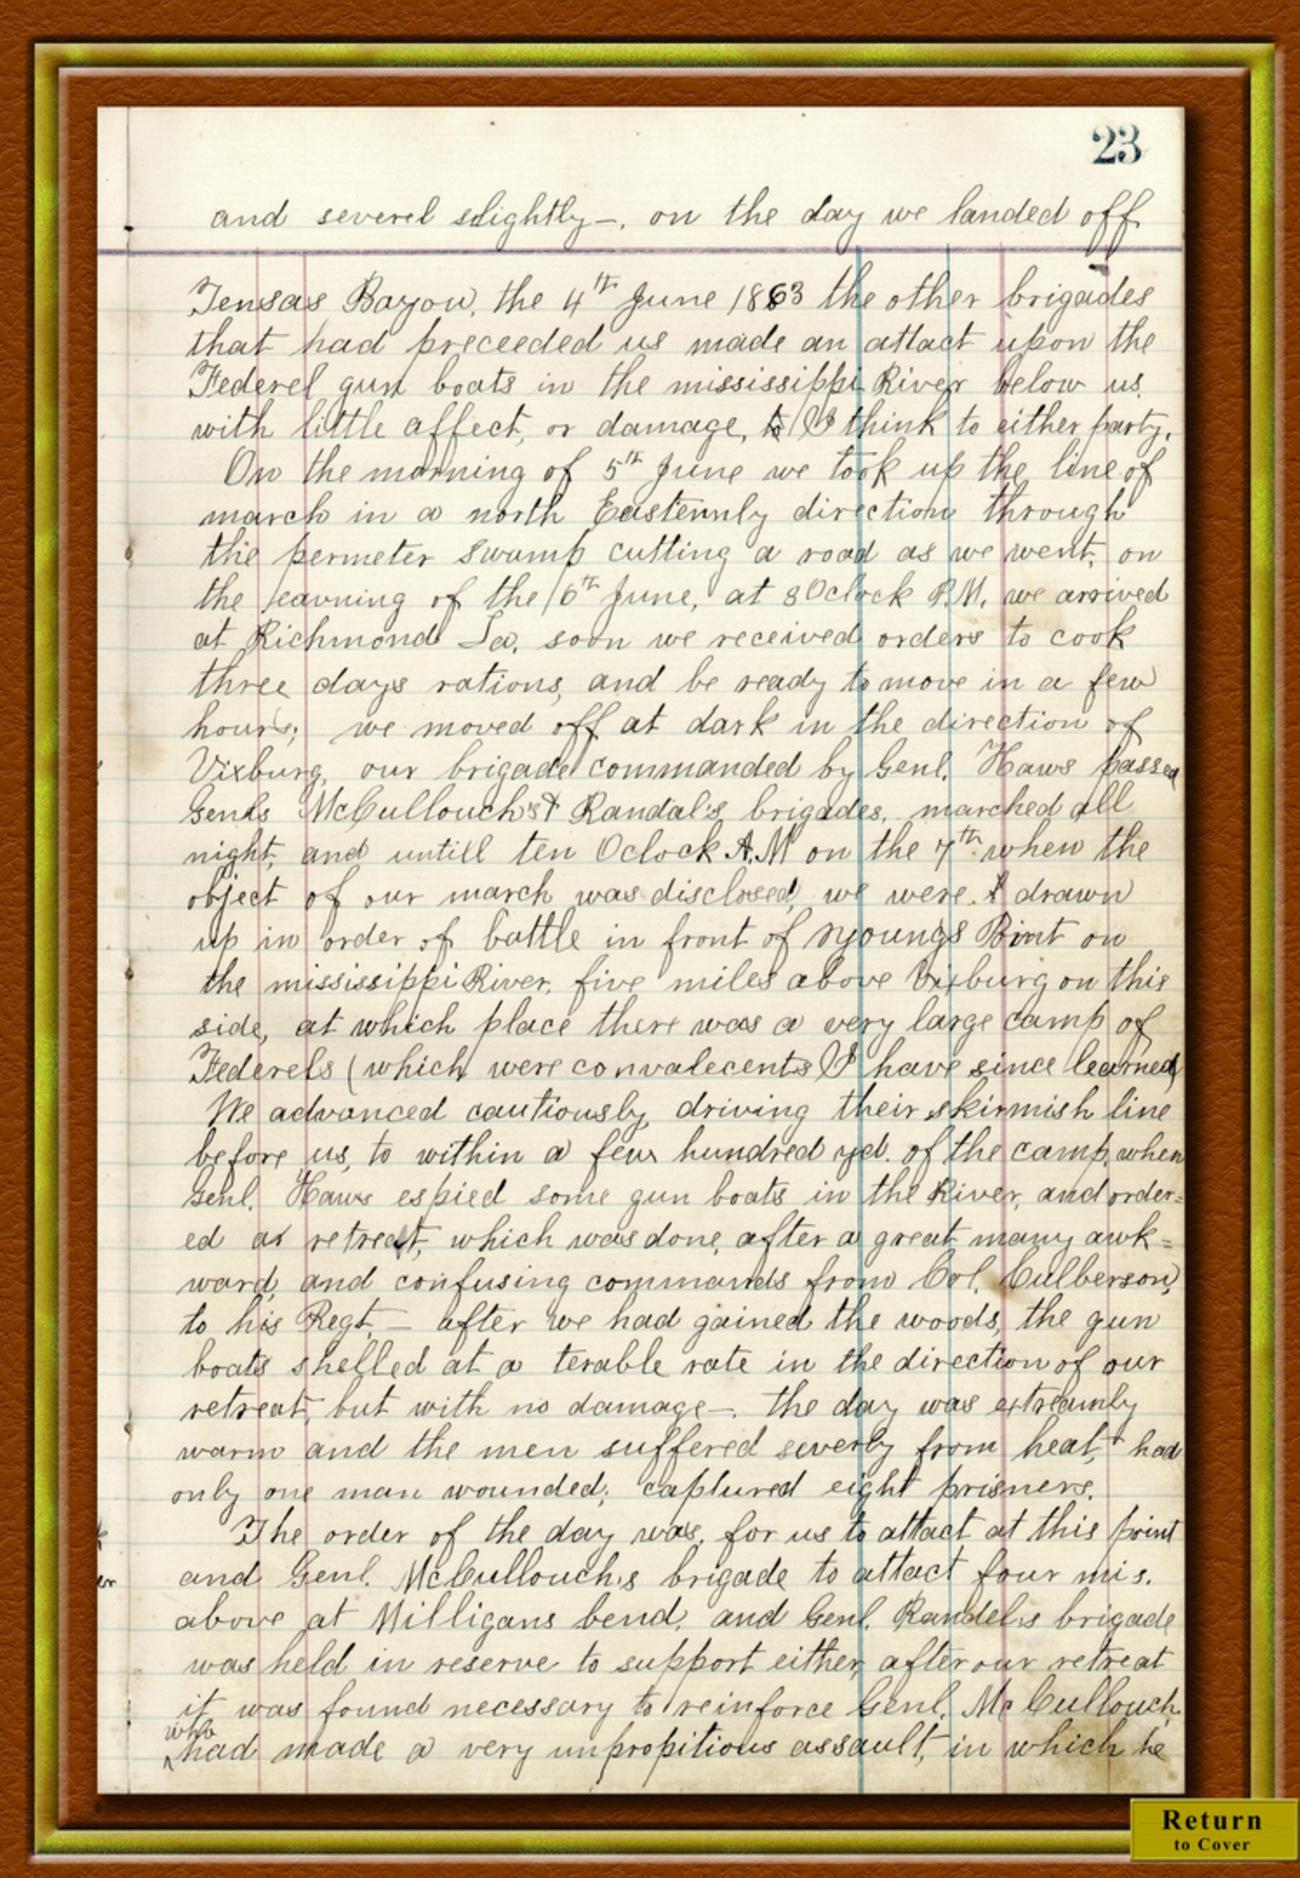 23
and severel slightly—. on the day we landed off
Tensas Bayou, the 4th June 1863 the other brigades
that had preceeded us made an attact upon the
Federel gun boats in the mississippi River below us.
with little affect, or damage, to I think to either party.
On the morning of 5th June we took up the line of
march in a north Easternly direction through
the permeter swamp cutting a road as we went, on
the eavning of the 6th June, at 8 Oclock P.M. we arrived
at Richmond La. soon we received orders to cook
three days rations, and be ready to move in a few
hours; we moved off at dark in the direction of
Vixburg, our brigade commanded by Genl. Haws passed
Genls McCullouch's & Randal's brigades, marched all
night, and untill ten Oclock A.M on the 7th when the
object of our march was disclosed, we were drawn
up in order of battle in front of youngs Point on
the mississippi River, five miles above Vixburg on this
side, at which place there was a very large camp of
Federels (which were convalecents I have since learned)
We advanced cautiously, driving their skirmish line
before us, to within a few hundred yd. of the camp, when
Genl. Haws espied some gun boats in the River, and order=
ed a retreat, which was done, after a great many awk=
ward, and confusing commands from Col. Culberson,
to his Regt,— after we had gained the woods, the gun
boats shelled at a terable rate in the direction of our
retreat, but with no damage—. the day was extreamly
warm and the men suffered severly from heat, & had
only one man wounded; captured eight prisners.
The order of the day was, for us to attact at this point
and Genl. McCullouch's brigade to attact four mis.
above at Milligans bend, and Genl. Randels brigade
was held in reserve to support either, after our retreat
it was found necessary to reinforce Genl. McCullouch
who
had made a very unpropitious assault, in which he
er
Return
to Cover